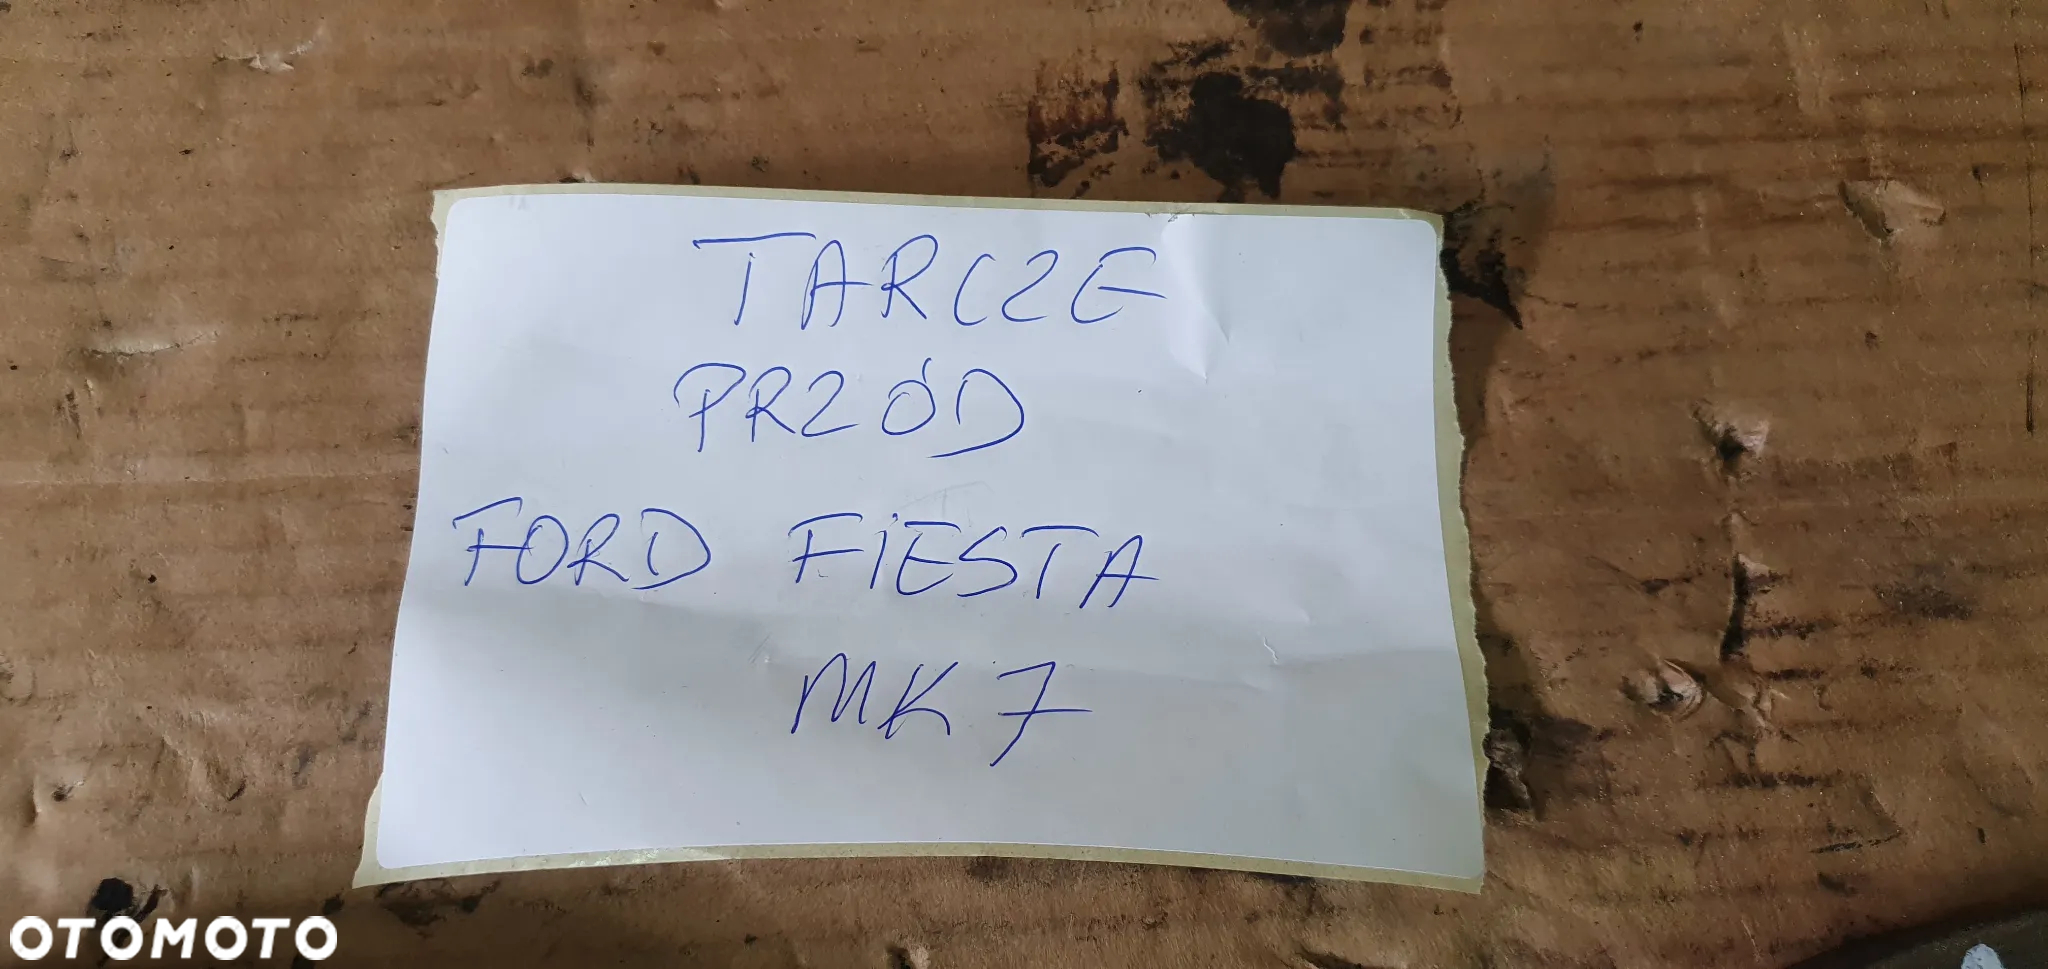 TARCZE
PRZÓD
FORD FIESTA
MK7
OTOMOTO